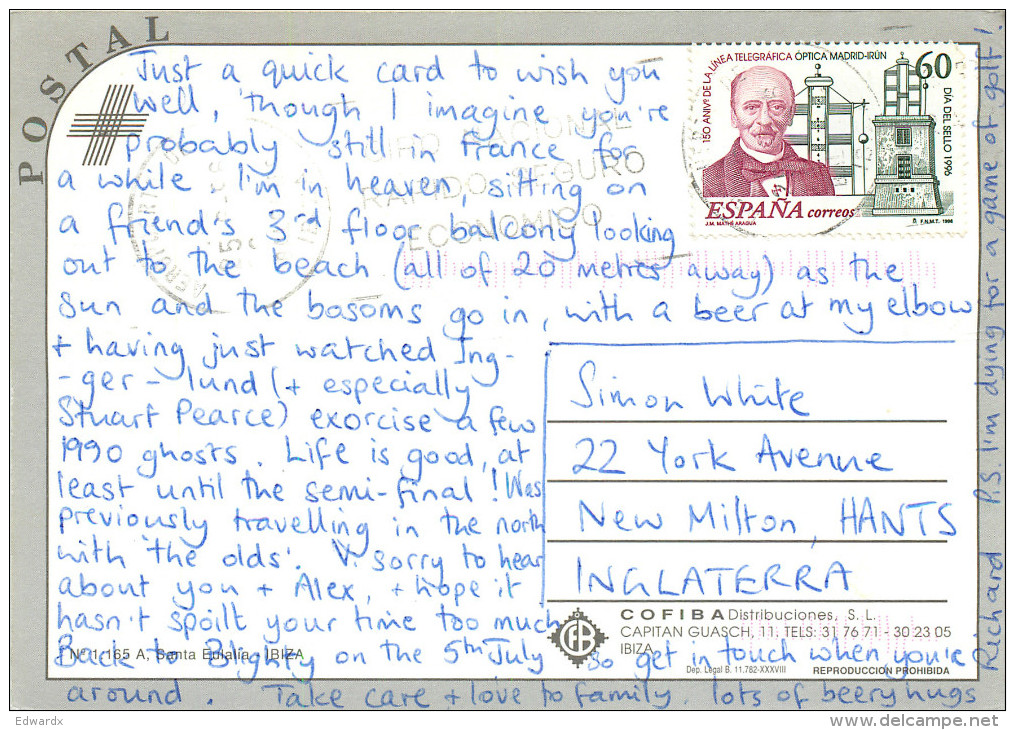 POSTAL
Just a quick card to wish you
well, 'though I imagine you're
probably still in France for
a while. I'm in heaven, sitting on
a friend's 3rd floor balcony looking
out to the beach (all of 20 metres away) as the
sun and the bosoms go in, with a beer at my elbow
+ having just watched Ing-
-ger-lund (+ especially
Stuart Pearce) exorcise a few
1990 ghosts. Life is good, at
least until the semi-final! Was
previously travelling in the north
with 'the olds'. V. sorry to hear
about you + Alex, + hope it
hasn't spoilt your time too much.
Back to Blighty on the 5th July so get in touch when you're
around. Take care + love to family. lots of beery hugs
Richard P.S. I'm dying for a game of golf!
150 ANIVº DE LA LÍNEA TELEGRÁFICA ÓPTICA MADRID-IRÚN
60
DIA DEL SELLO 1996
ESPAÑA correos
J.M. MATHÉ ARAGUA
F.N.M.T. 1996
RAPIDO SEGURO
ECONOMICO
Simon White
22 York Avenue
New Milton, HANTS
INGLATERRA
COFIBA Distribuciones, S. L.
CAPITAN GUASCH, 11. TELS: 31 76 71 - 30 23 05
IBIZA
Dep. Legal B. 11.782-XXXVIII
REPRODUCCIÓN PROHIBIDA
Nº 1.165 A, Santa Eulalia. IBIZA
Edwardx
www.delcampe.net